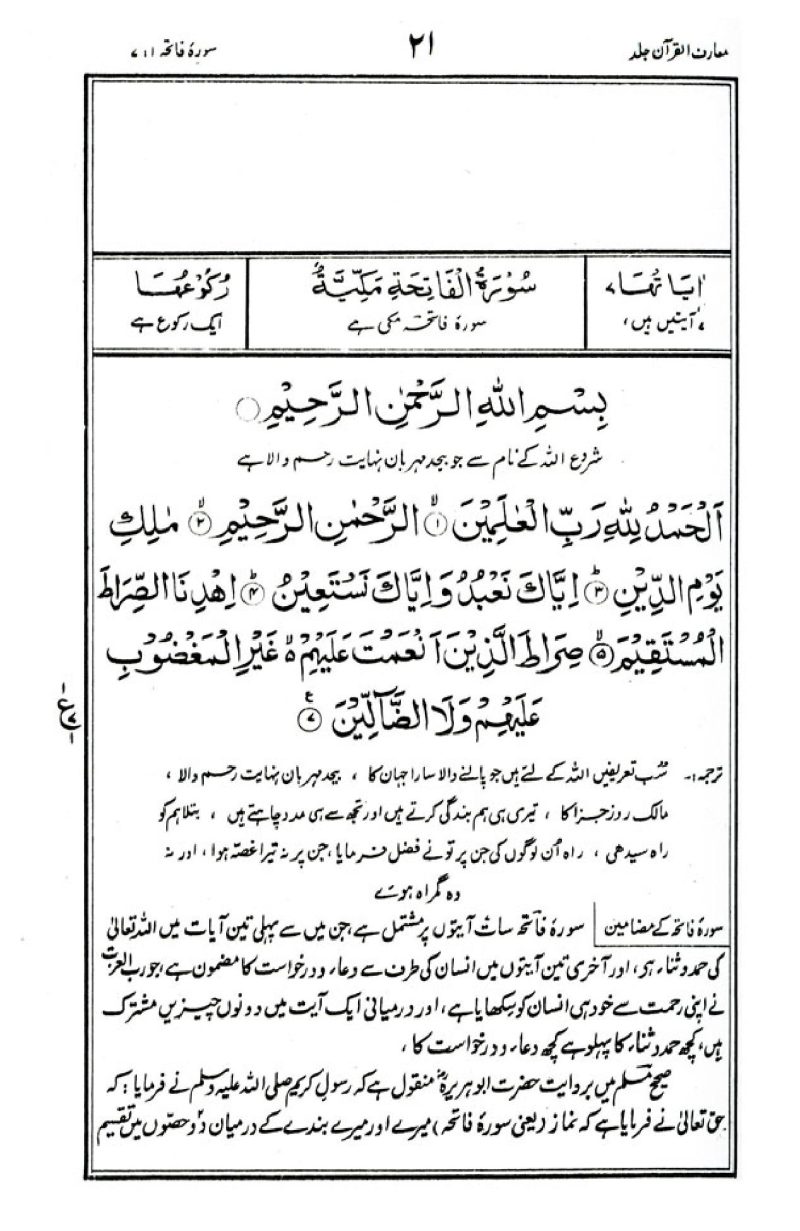 معارف القرآن جلد
۲۱
سورۂ فاتحہ ۱ : ۷
اٰیَاتُهَا ۷
سُوْرَةُ الْفَاتِحَةِ مَكِّيَّةٌ
رُكُوْعُهَا
۷ آیتیں ہیں،
سورۂ فاتحہ مکی ہے
ایک رکوع ہے
بِسْمِ اللهِ الرَّحْمٰنِ الرَّحِيْمِ
شروع اللہ کے نام سے جو بیحد مہربان نہایت رحم والا ہے
اَلْحَمْدُ لِلّٰهِ رَبِّ الْعٰلَمِيْنَ ۙ﴿۱﴾ الرَّحْمٰنِ الرَّحِيْمِ ۙ﴿۲﴾ مٰلِكِ
يَوْمِ الدِّيْنِ ؕ﴿۳﴾ اِيَّاكَ نَعْبُدُ وَاِيَّاكَ نَسْتَعِيْنُ ؕ﴿۴﴾ اِهْدِنَا الصِّرَاطَ
الْمُسْتَقِيْمَ ۙ﴿۵﴾ صِرَاطَ الَّذِيْنَ اَنْعَمْتَ عَلَيْهِمْ ۙ غَيْرِ الْمَغْضُوْبِ
عَلَيْهِمْ وَلَا الضَّآلِّيْنَ ﴿۷﴾
ع
ترجمہ :۔ سب تعریفیں اللہ کے لئے ہیں جو پالنے والا سارا جہان کا ، بیحد مہربان نہایت رحم والا ،
مالک روز جزا کا ، تیری ہی ہم بندگی کرتے ہیں اور تجھ سے ہی مدد چاہتے ہیں ، بتلا ہم کو
راہ سیدھی ، راہ اُن لوگوں کی جن پر تو نے فضل فرمایا ، جن پر نہ تیرا غصہ ہوا ، اور نہ
وہ گمراہ ہوئے
سورۂ فاتحہ کے مضامین سورۂ فاتحہ سات آیتوں پر مشتمل ہے ، جن میں سے پہلی تین آیات میں اللہ تعالیٰ
کی حمد و ثناء ہی ، اور آخری تین آیتوں میں انسان کی طرف سے دعاء و درخواست کا مضمون ہے ، جو رب العزت
نے اپنی رحمت سے خود ہی انسان کو سکھایا ہے ، اور درمیانی ایک آیت میں دونوں چیزیں مشترک
ہیں ، کچھ حمد و ثناء کا پہلو ہے کچھ دعاء و درخواست کا ،
صحیح مسلم میں بروایت حضرت ابوہریرہؓ منقول ہے کہ رسولِ کریم صلی اللہ علیہ وسلم نے فرمایا : کہ
حق تعالیٰ نے فرمایا ہے کہ نماز (یعنی سورۂ فاتحہ) میرے اور میرے بندے کے درمیان دو حصوں میں تقسیم